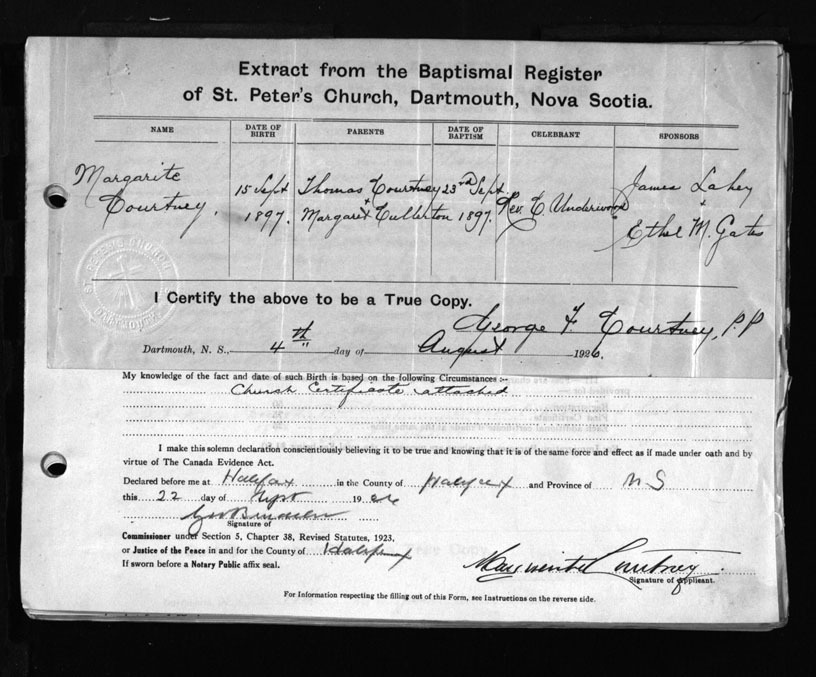 Extract from the Baptismal Register
of St. Peter's Church, Dartmouth, Nova Scotia.
NAME DATE OF BIRTH PARENTS DATE OF BAPTISM CELEBRANT SPONSORS
Margarite Courtney, 15 Sept 1897. Thomas Courtney + Margaret Cullerton 23rd Sept. 1897. Rev. C. Underwood James Lahey + Ethel M. Gates
ST. PETER'S CHURCH DARTMOUTH
I Certify the above to be a True Copy.
George F. Courtney, P.P
Dartmouth, N. S., 4th day of August 1926.
My knowledge of the fact and date of such Birth is based on the following Circumstances :-
Church Certificate attached
I make this solemn declaration conscientiously believing it to be true and knowing that it is of the same force and effect as if made under oath and by
virtue of The Canada Evidence Act.
Declared before me at Halifax in the County of Halifax and Province of N S
this 22 day of Sept 1926
Signature of
Commissioner under Section 5, Chapter 38, Revised Statutes, 1923,
or Justice of the Peace in and for the County of Halifax
If sworn before a Notary Public affix seal.
Marguerite Courtney
Signature of Applicant.
For Information respecting the filling out of this Form, see Instructions on the reverse side.